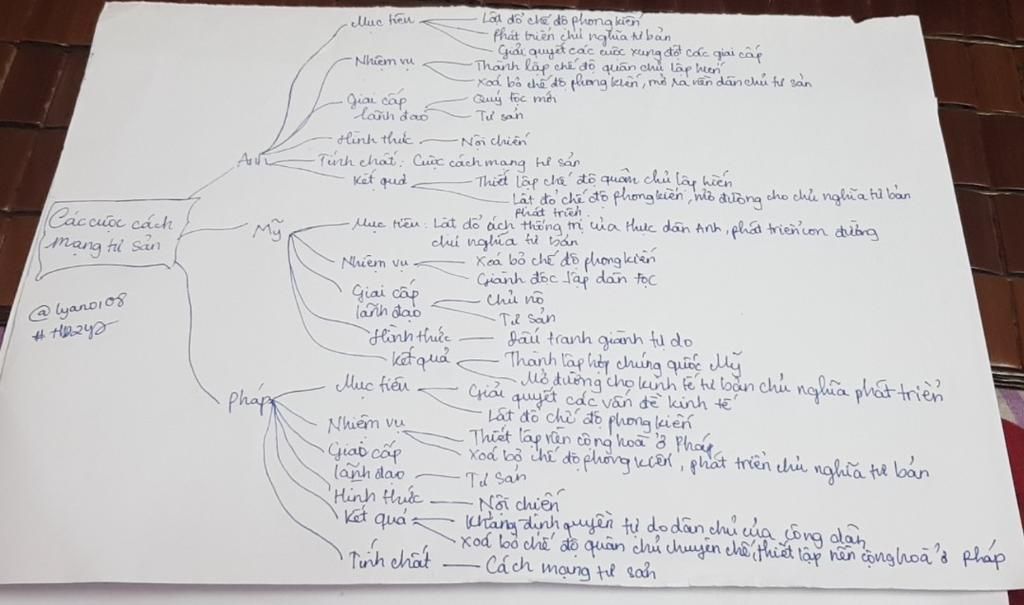 Các cuộc cách
mạng tư sản
@lyano108
Anh
Mục tiêu
Lật đổ chế độ phong kiến
Phát triển chủ nghĩa tư bản
Giải quyết các cuộc xung đột các giai cấp
Nhiệm vụ
Thành lập chế độ quân chủ lập hiến
Xoá bỏ chế độ phong kiến, mở ra nền dân chủ tư sản
Giai cấp
lãnh đạo
Quý tộc mới
Tư sản
Hình thức
Nội chiến
Tính chất: Cuộc cách mạng tư sản
Kết quả
Thiết lập chế độ quân chủ lập hiến
Lật đổ chế độ phong kiến, mở đường cho chủ nghĩa tư bản
phát triển.
Mỹ
Mục tiêu: Lật đổ ách thống trị của thực dân Anh, phát triển con đường
chủ nghĩa tư bản
Nhiệm vụ
Xoá bỏ chế độ phong kiến
Giành độc lập dân tộc
Giai cấp
lãnh đạo
Chủ nô
Tư sản
Hình thức
Đấu tranh giành tự do
Kết quả
Thành lập hợp chúng quốc Mỹ
Mở đường cho kinh tế tư bản chủ nghĩa phát triển
Pháp
Mục tiêu
Giải quyết các vấn đề kinh tế
Lật đổ chế độ phong kiến
Nhiệm vụ
Thiết lập nền cộng hoà ở Pháp
Xoá bỏ chế độ phong kiến, phát triển chủ nghĩa tư bản
Giai cấp
lãnh đạo
Tư sản
Hình thức
Nội chiến
Kết quả
Khẳng định quyền tự do dân chủ của công dân
Xoá bỏ chế độ quân chủ chuyên chế, thiết lập nền cộng hoà ở Pháp
Tính chất
Cách mạng tư sản